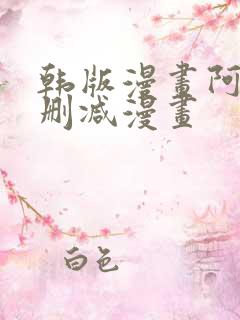 韩版漫畫阿
删减漫畫
白色